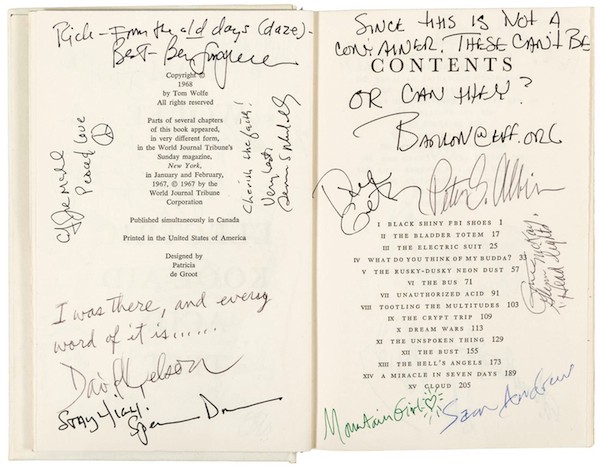 Rick - From the old days (daze) -
Best - Ben
Copyright ©
1968
by Tom Wolfe
All rights reserved
Parts of several chapters
of this book appeared,
in very different form,
in the World Journal Tribune's
Sunday magazine,
New York,
in January and February,
1967, © 1967 by the
World Journal Tribune
Corporation
Peace & Love
Cherish the faith!
Very best,
Dennis McNally
Published simultaneously in Canada
Printed in the United States of America
Designed by
Patricia
de Groot
I was there, and every
word of it is......
David Nelson
Stay high.
Spencer
SINCE THIS IS NOT A
CONTAINER, THESE CAN'T BE
CONTENTS
OR CAN THEY?
BARLOW@EFF.ORG
Peter S. Albin
I BLACK SHINY FBI SHOES 1
II THE BLADDER TOTEM 17
III THE ELECTRIC SUIT 25
IV WHAT DO YOU THINK OF MY BUDDA? 33
V THE RUSKY-DUSKY NEON DUST 57
VI THE BUS 71
VII UNAUTHORIZED ACID 91
VIII TOOTLING THE MULTITUDES 103
IX THE CRYPT TRIP 109
X DREAM WARS 113
XI THE UNSPOKEN THING 129
XII THE BUST 155
XIII THE HELL'S ANGELS 173
XIV A MIRACLE IN SEVEN DAYS 189
XV CLOUD 205
"Headlights"
Mountain Girl
Sam Andrew